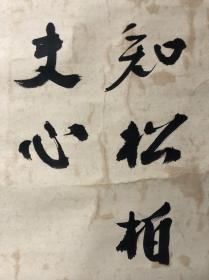 知松柏
夫心